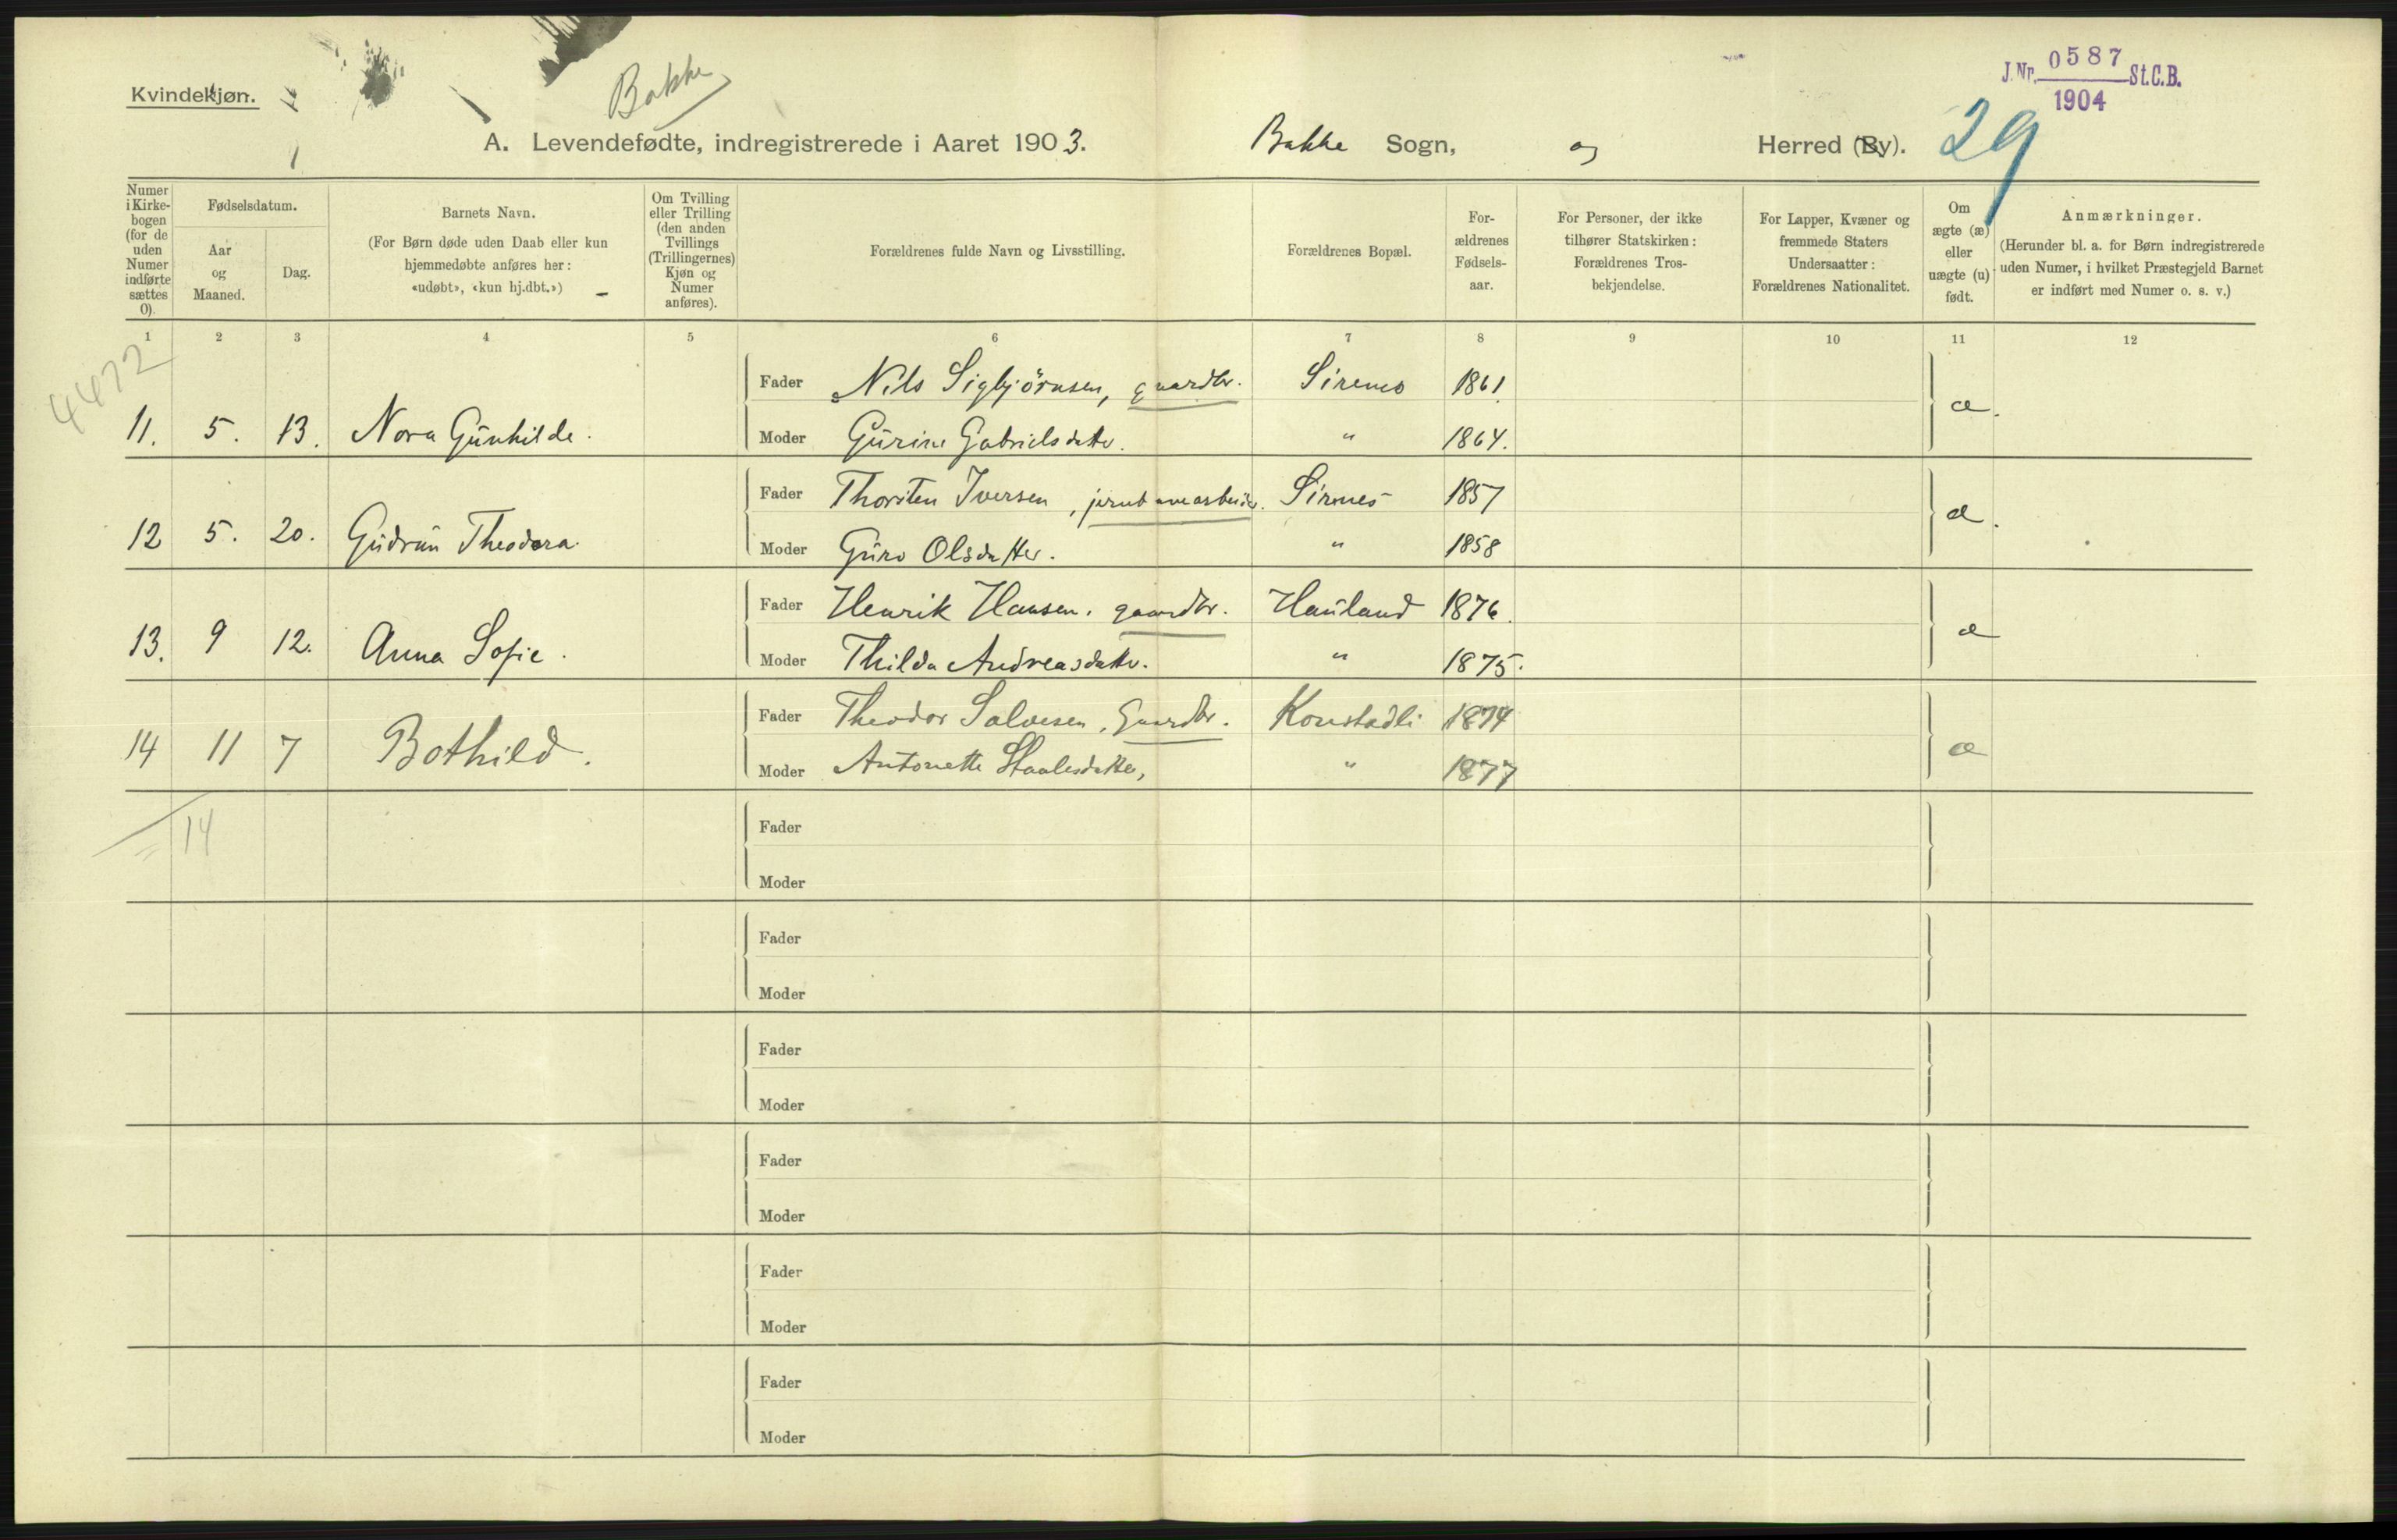 Kvindekjøn.
Bakke
J. Nr. 0587 St.C.B.
1904
29
1
A. Levendefødte, indregistrerede i Aaret 1903. Bakke Sogn, og Herred (By).
Numer i Kirkebogen (for de uden Numer indførte sættes 0).
Fødselsdatum.
Aar og Maaned.
Dag.
Barnets Navn.
(For Børn døde uden Daab eller kun hjemmedøbte anføres her: «udøbt», «kun hj.dbt.»)
Om Tvilling eller Trilling (den anden Tvillings (Trillingernes) Kjøn og Numer anføres).
Forældrenes fulde Navn og Livsstilling.
Forældrenes Bopæl.
For-ældrenes Fødsels-aar.
For Personer, der ikke tilhører Statskirken: Forældrenes Tros-bekjendelse.
For Lapper, Kvæner og fremmede Staters Undersaatter: Forældrenes Nationalitet.
Om ægte (æ) eller uægte (u) født.
Anmærkninger.
(Herunder bl. a. for Børn indregistrerede uden Numer, i hvilket Præstegjeld Barnet er indført med Numer o. s. v.)
1 2 3 4 5 6 7 8 9 10 11 12
4472
Fader Nils Sigbjörnsen, gaardbr. Sirenes 1861
11. 5. 13. Nora Gunhilde. Moder Gurine Gabrielsdatter. " 1864. æ.
Fader Thorsten Iversen, jernbanearbeider. Sirnes 1857
12 5. 20. Gudrun Theodora. Moder Guro Olsdatter. " 1858 æ.
Fader Henrik Hansen, gaardbr. Hauland 1876.
13. 9 12. Anna Sofie. Moder Thilda Andreasdatter. " 1875. æ
Fader Theodor Salvesen, Gaardbr. Konstadli 1874
14 11 7 Bothild. Moder Antonette Staalesdatter, " 1877 æ
14
Fader
Moder
Fader
Moder
Fader
Moder
Fader
Moder
Fader
Moder
Fader
Moder